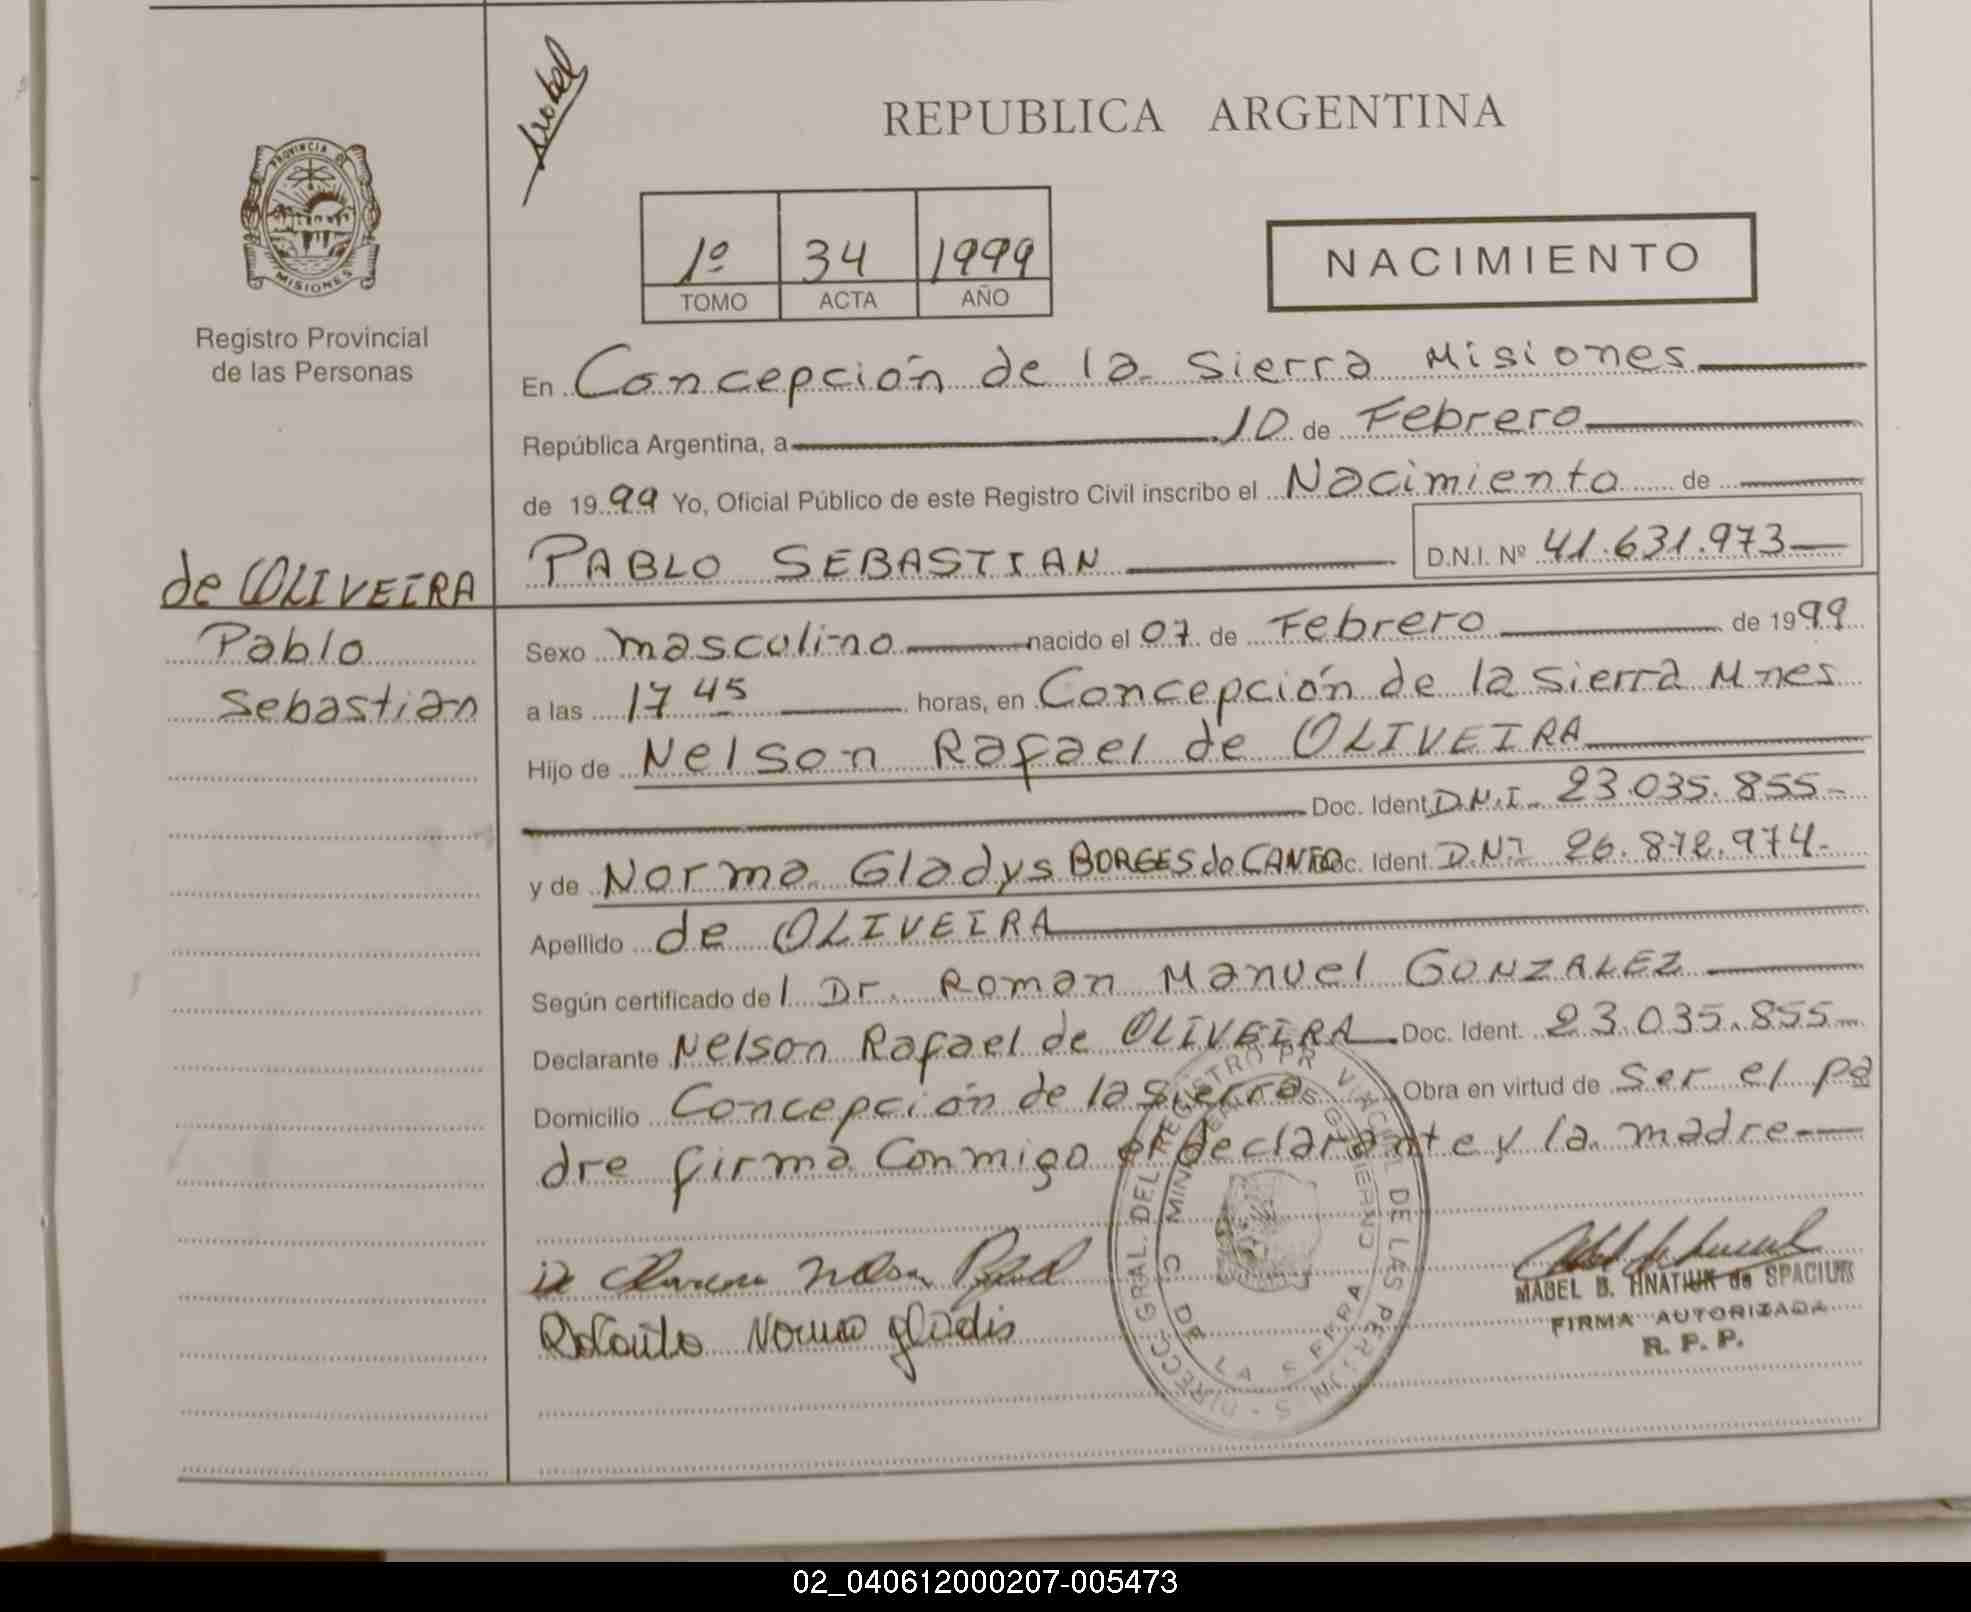 REPUBLICA ARGENTINA
PROVINCIA DE
MISIONES
Registro Provincial
de las Personas
1º 34 1999
TOMO ACTA AÑO
NACIMIENTO
En Concepción de la Sierra Misiones
República Argentina, a 10 de Febrero
de 1999 Yo, Oficial Público de este Registro Civil inscribo el Nacimiento de
PABLO SEBASTIAN D.N.I. Nº 41.631.973
de OLIVEIRA
Pablo
Sebastian
Sexo masculino nacido el 07 de Febrero de 1999
a las 17 45 horas, en Concepción de la Sierra Mnes
Hijo de Nelson Rafael de OLIVEIRA
Doc. Ident. D.N.I. 23.035.855-
y de Norma Gladys BORGES do CANTO Doc. Ident. D.NI 26.872.974-
Apellido de OLIVEIRA
Según certificado del Dr. Roman Manuel GONZALEZ
Declarante Nelson Rafael de OLIVEIRA Doc. Ident. 23.035.855-
Domicilio Concepción de la Sierra Obra en virtud de ser el pa
dre firma Conmigo el declarante y la madre
Norma gladis
DIRECC. GRAL. DEL REGISTRO PROVINCIAL DE LAS PERS.
DE LA SIERRA
MABEL B. HNATIUK de SPACIUK
FIRMA AUTORIZADA
R. P. P.
02_040612000207-005473